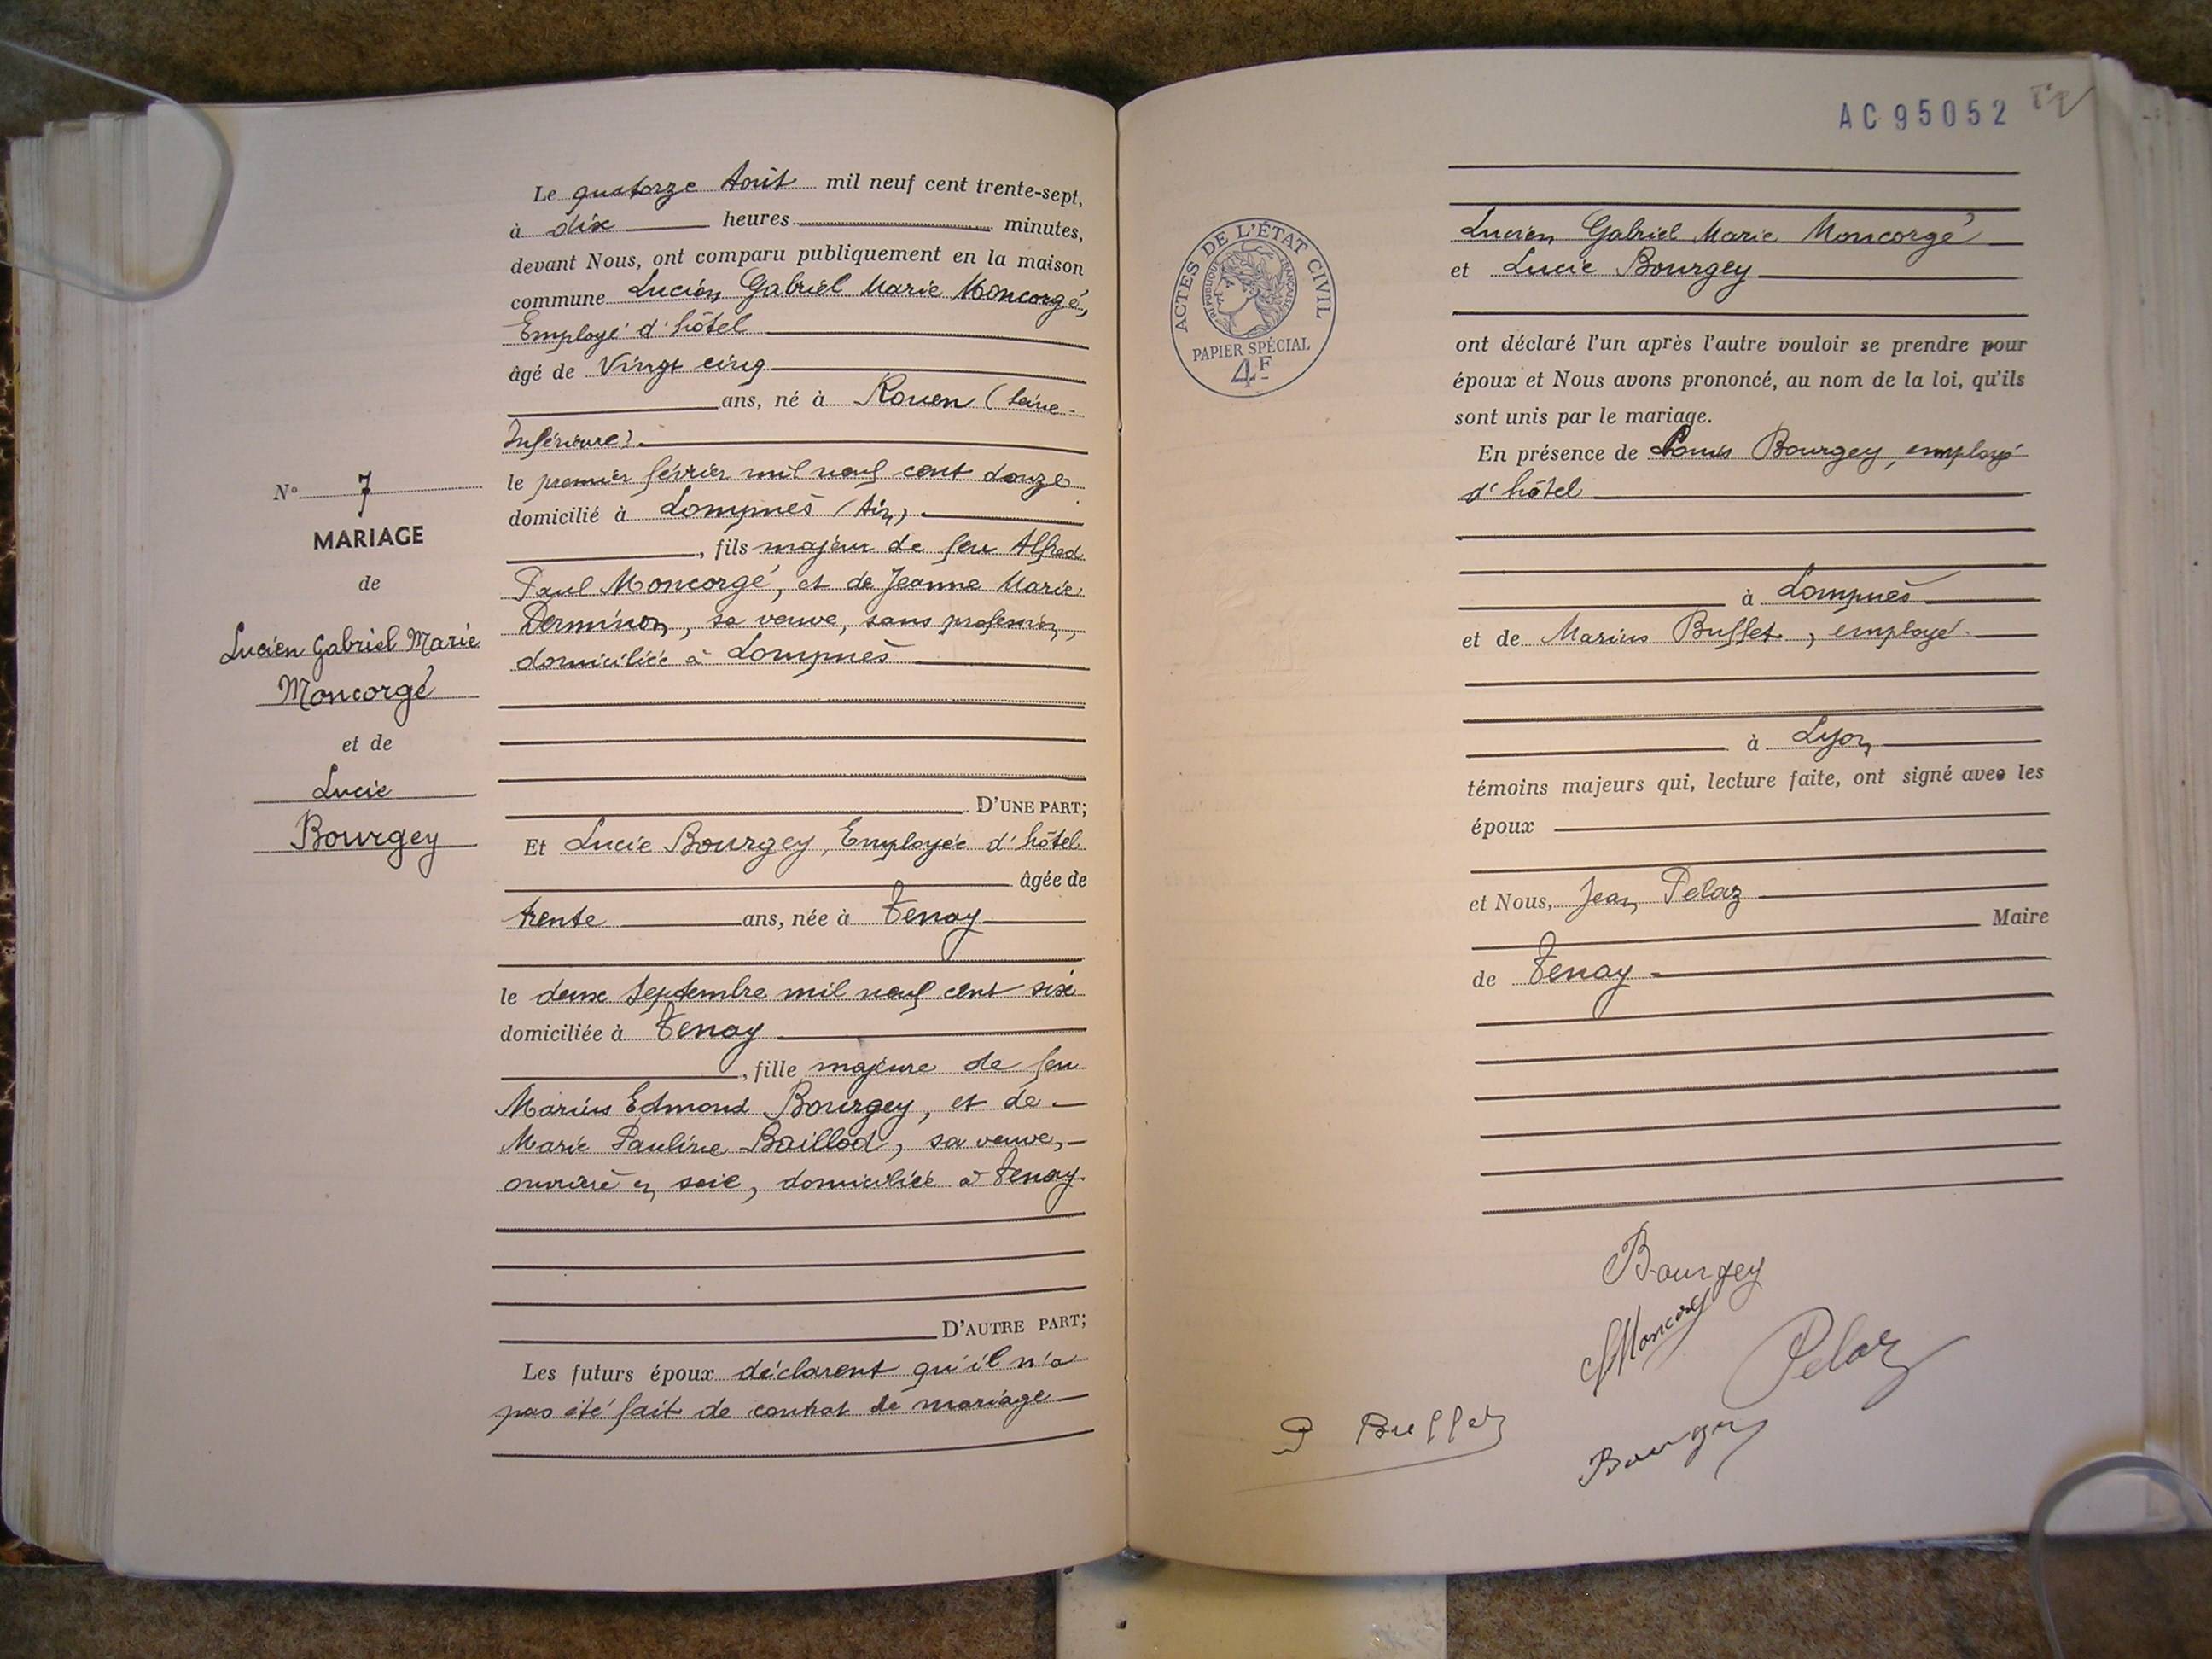 Le quatorze Août mil neuf cent trente-sept,
à dix heures minutes,
devant Nous, ont comparu publiquement en la maison
commune Lucien Gabriel Marie Moncorgé,
Employé d'hôtel
âgé de Vingt cinq
ans, né à Rouen (Seine-
Inférieure).
le premier février mil neuf cent douze
domicilié à Lompnès (Ain).
, fils majeur de feu Alfred
Paul Moncorgé, et de Jeanne Marie
Derminon, sa veuve, sans profession,
domiciliée à Lompnès
D'UNE PART;
Et Lucie Bourgey, Employée d'hôtel
âgée de
trente ans, née à Tenay
le deux Septembre mil neuf cent six
domiciliée à Tenay
, fille majeure de feu
Marius Edmond Bourgey, et de
Marie Pauline Baillod, sa veuve,
ouvrière en soie, domiciliée à Tenay.
D'AUTRE PART;
Les futurs époux déclarent qu'il n'a
pas été fait de contrat de mariage
N° 7
MARIAGE
de
Lucien Gabriel Marie
Moncorgé
et de
Lucie
Bourgey
AC 95052
ACTES DE L'ÉTAT CIVIL
RÉPUBLIQUE FRANÇAISE
PAPIER SPÉCIAL
4F
Lucien Gabriel Marie Moncorgé
et Lucie Bourgey
ont déclaré l'un après l'autre vouloir se prendre pour
époux et Nous avons prononcé, au nom de la loi, qu'ils
sont unis par le mariage.
En présence de Louis Bourgey, employé
d'hôtel
à Lompnès
et de Marius Buffet, employé.
à Lyon
témoins majeurs qui, lecture faite, ont signé avec les
époux
et Nous, Jean Pelaz
Maire
de Tenay
Bourgey
Moncorgé
Pelaz
Buffet
Bourgey